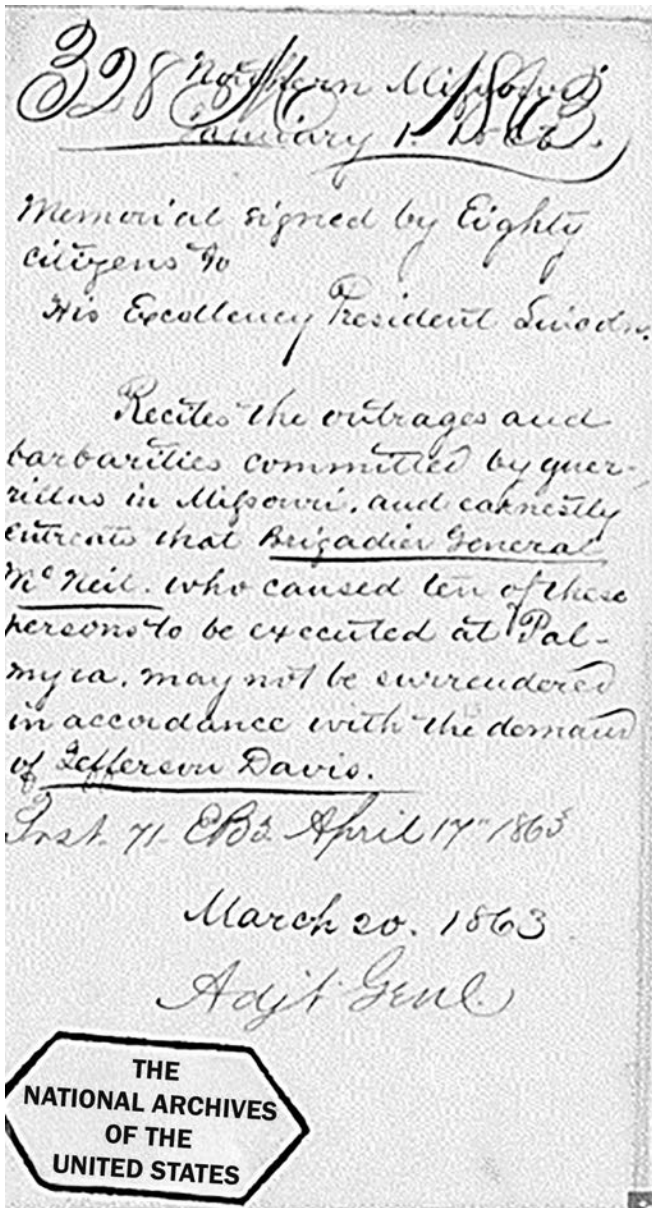 328 M 1863
Northern Missouri
January 1. 1863.
Memorial signed by Eighty
citizens to
His Excellency President Lincoln.
Recites the outrages and
barbarities committed by guer-
rillas in Missouri, and earnestly
entreats that Brigadier General
McNeil. who caused ten of these
persons to be executed at Pal-
myra, may not be surrendered
in accordance with the demand
of Jefferson Davis.
71 April 17" 1863
March 20. 1863
Adjt Genl.
THE
NATIONAL ARCHIVES
OF THE
UNITED STATES